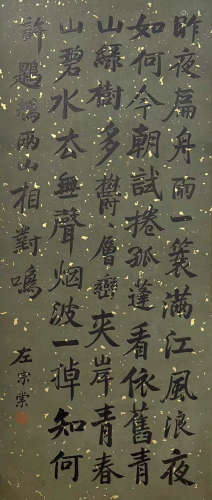 昨夜扁舟雨一簑滿江風浪夜
如何今朝試捲孤蓬看依舊青
山綠樹多欝〻層巒夾岸青春
山碧水去無聲烟波一掉知何
許鶗鴂兩山相對鳴
左宗棠